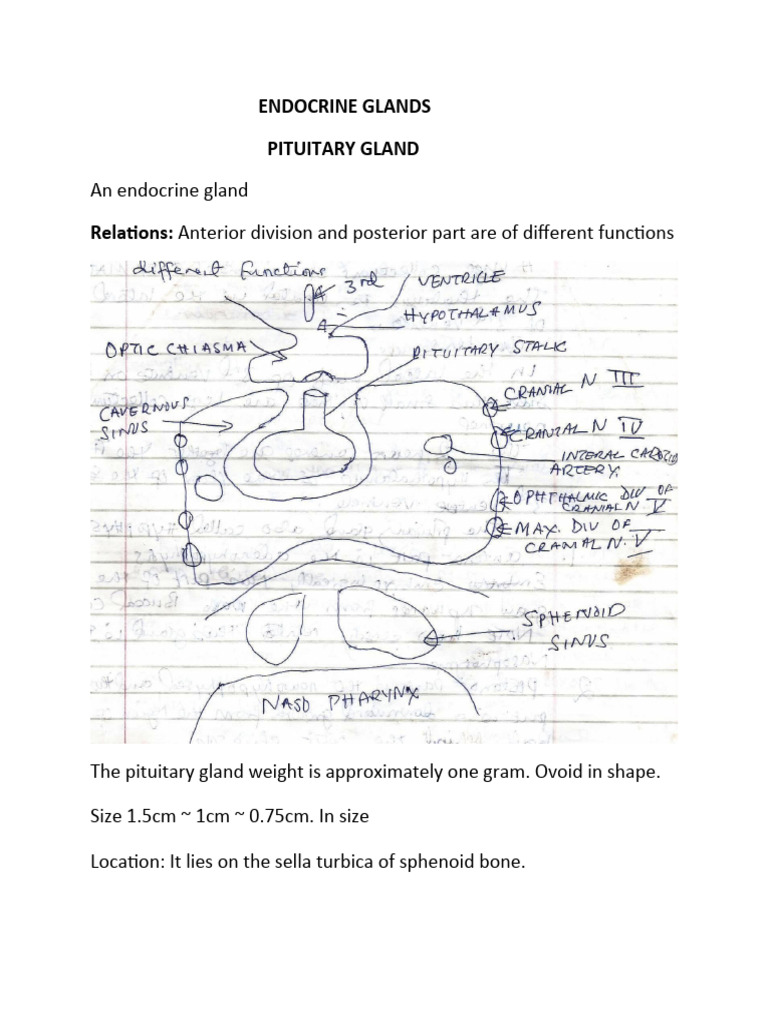 ENDOCRINE GLANDS
PITUITARY GLAND
An endocrine gland
Relations: Anterior division and posterior part are of different functions
different functions
3rd VENTRICLE
HYPOTHALAMUS
OPTIC CHIASMA
PITUITARY STALK
CRANIAL N III
CAVERNOUS
SINUS
CRANIAL N IV
INTERAL CAROTID
ARTERY.
OPHTHALMIC DIV OF
CRANIAL N. V
MAX. DIV OF
CRANIAL N. V
SPHENOID
SINUS
NASO PHARYNX
The pituitary gland weight is approximately one gram. Ovoid in shape.
Size 1.5cm ~ 1cm ~ 0.75cm. In size
Location: It lies on the sella turbica of sphenoid bone.